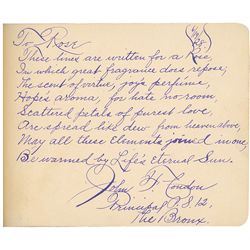 To Rose
These lines are written for a Rose,
In which great fragrance does repose;
The scent of virtue, joy's perfume,
Hope's aroma, for hate no room,
Scattered petals of purest love,
Are spread like dew from heaven above,
May all these Elements joined in one,
Be warmed by Life's Eternal Sun.
John H. Condon
Principal P.S. 12,
The Bronx.